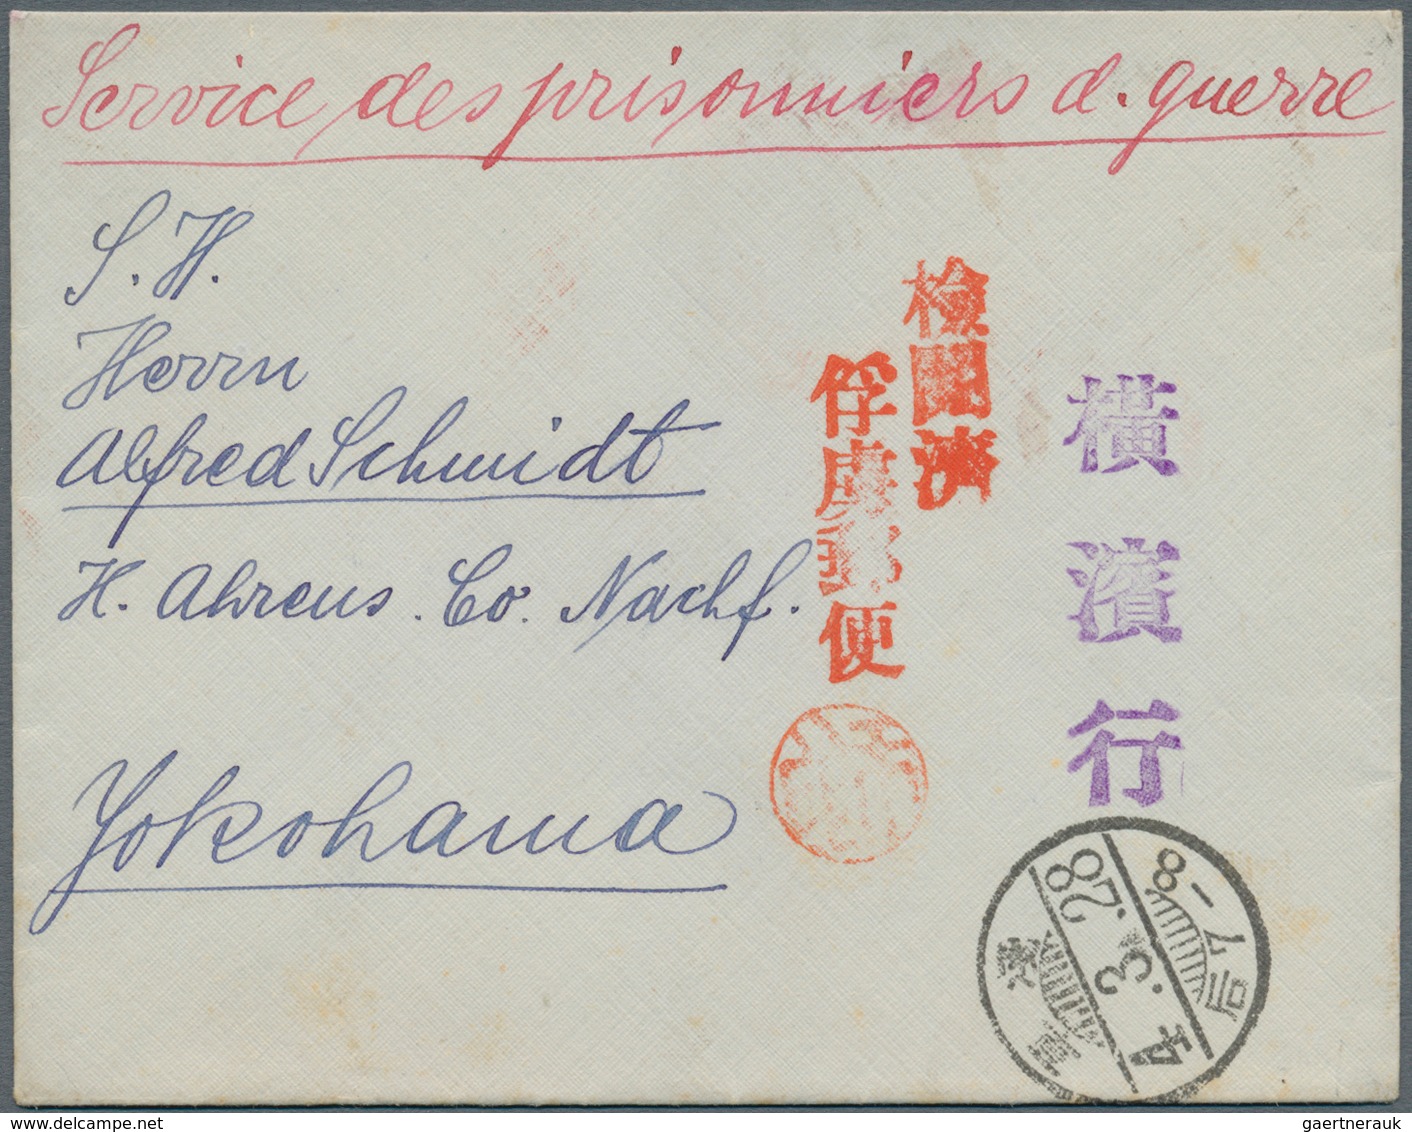 Service des prisonniers d. guerre
S. H.
Herrn
Alfred Schmidt
H. Ahrens. Co. Nachf.
Yokohama
橫濱行
檢閲濟
俘虜郵便
4.3.28
后7-8
gaertnerauk | delcampe.net